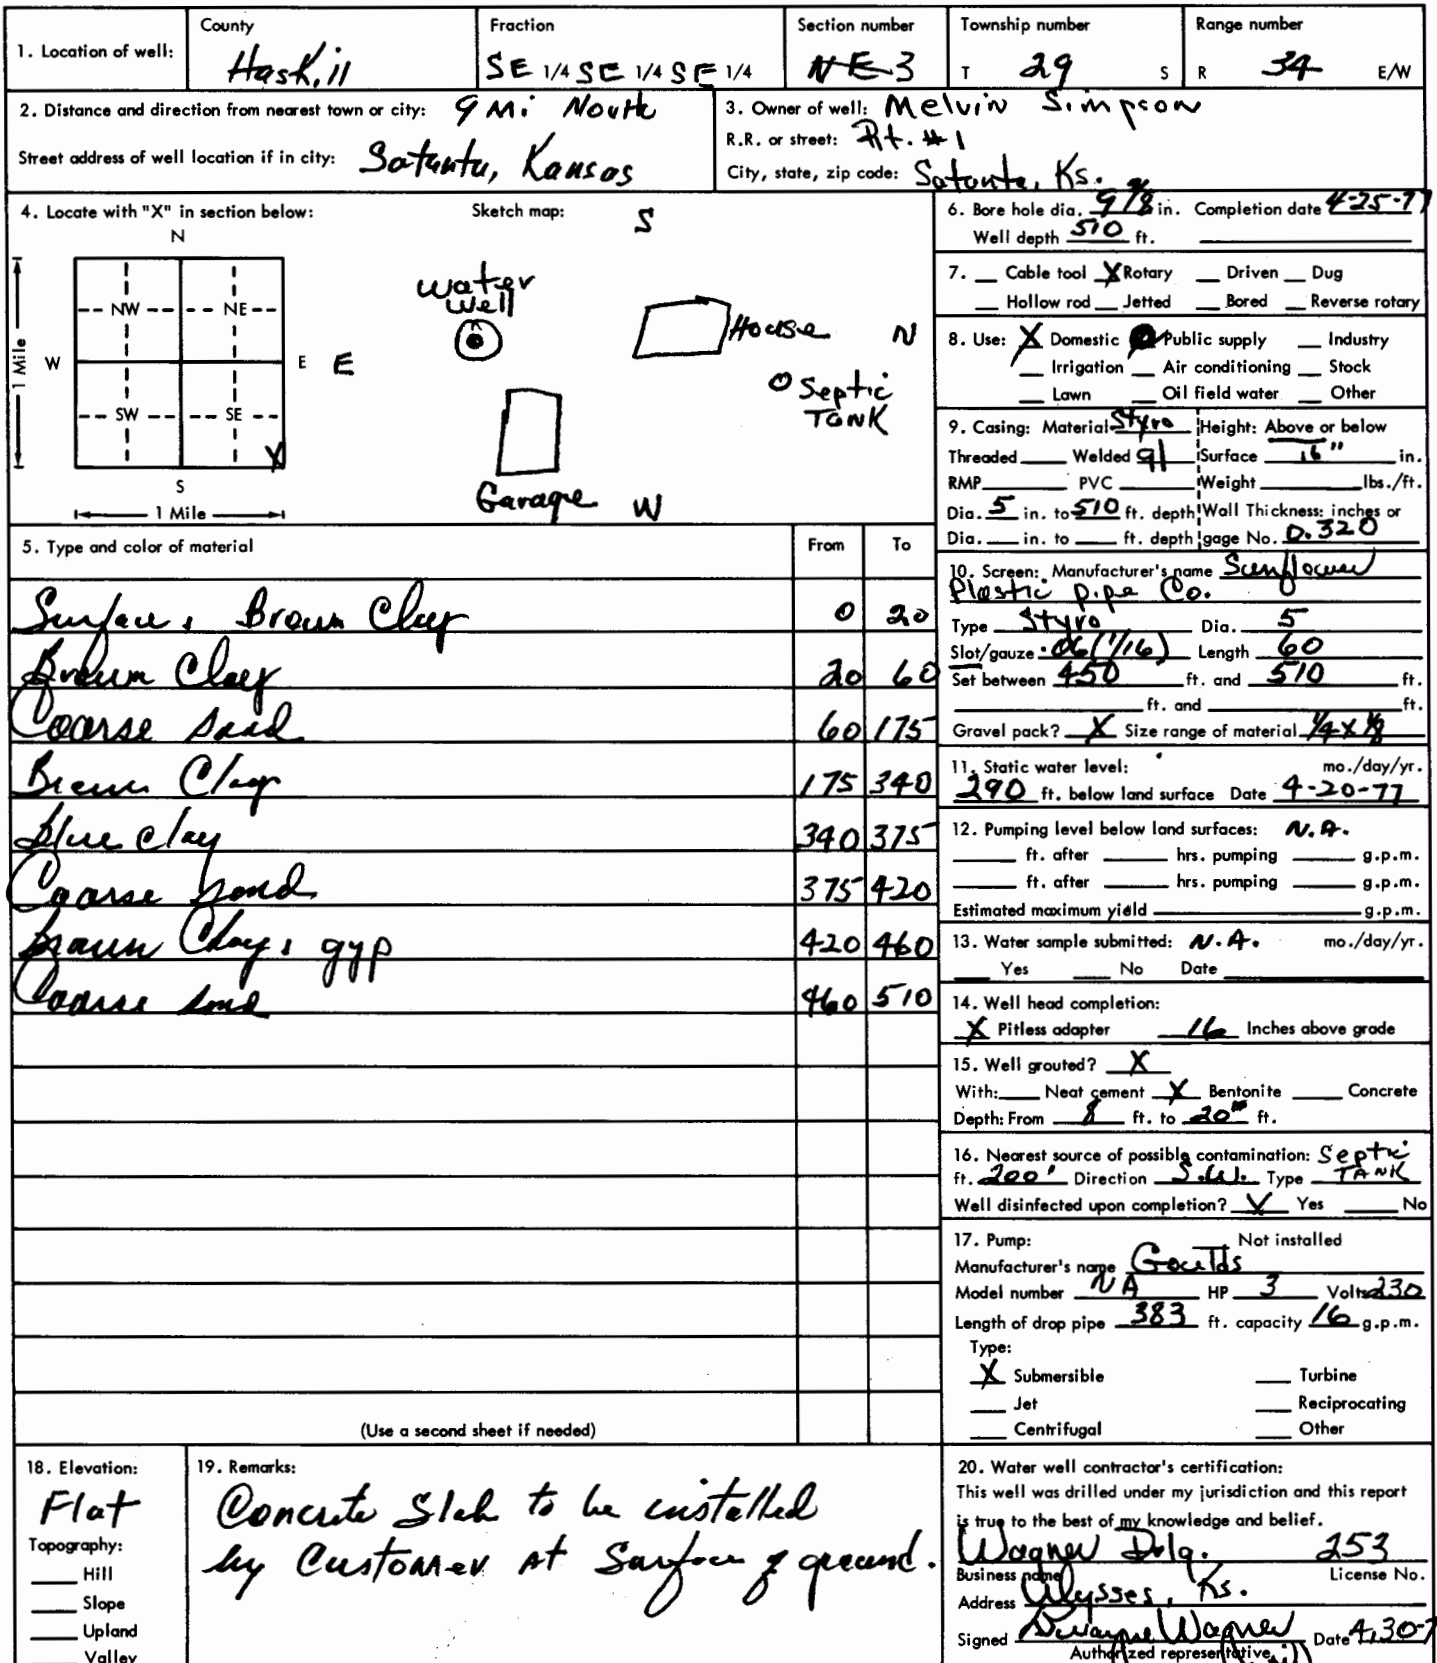 1. Location of well: County Hask,ll Fraction SE 1/4 SE 1/4 SE 1/4 Section number NE 3 Township number T 29 S Range number R 34 E/W
2. Distance and direction from nearest town or city: 9 Mi North
Street address of well location if in city: Satanta, Kansas
3. Owner of well: Melvin Simpson
R.R. or street: Rt. #1
City, state, zip code: Satanta, Ks.
4. Locate with "X" in section below:
N
NW NE
W E
SW SE
X
S
1 Mile
1 Mile
Sketch map:
S
water
well
House
N
E
Septic
TANK
Garage
W
5. Type and color of material From To
Surface, Brown Clay 0 20
Brown Clay 20 60
Coarse sand 60 175
Brown Clay 175 340
blue clay 340 375
Coarse sand 375 420
brown Clay, gyp 420 460
Coarse sand 460 510
(Use a second sheet if needed)
6. Bore hole dia. 9 7/8 in. Completion date 4-25-77
Well depth 510 ft.
7. Cable tool X Rotary Driven Dug
Hollow rod Jetted Bored Reverse rotary
8. Use: X Domestic Public supply Industry
Irrigation Air conditioning Stock
Lawn Oil field water Other
9. Casing: Material Styro Height: Above or below
Threaded Welded gl Surface 16" in.
RMP PVC Weight lbs./ft.
Dia. 5 in. to 510 ft. depth Wall Thickness: inches or
Dia. in. to ft. depth gage No. 0.320
10. Screen: Manufacturer's name Sunflower
Plastic pipe Co.
Type Styro Dia. 5
Slot/gauze .06 (1/16) Length 60
Set between 450 ft. and 510 ft.
ft. and ft.
Gravel pack? X Size range of material 1/4 X 1/8
11. Static water level: mo./day/yr.
290 ft. below land surface Date 4-20-77
12. Pumping level below land surfaces: N.A.
ft. after hrs. pumping g.p.m.
ft. after hrs. pumping g.p.m.
Estimated maximum yield g.p.m.
13. Water sample submitted: N.A. mo./day/yr.
Yes No Date
14. Well head completion:
X Pitless adapter 16 Inches above grade
15. Well grouted? X
With: Neat cement X Bentonite Concrete
Depth: From 8 ft. to 20" ft.
16. Nearest source of possible contamination: Septic
ft. 200' Direction S.W. Type TANK
Well disinfected upon completion? X Yes No
17. Pump: Not installed
Manufacturer's name Goulds
Model number NA HP 3 Volts 230
Length of drop pipe 383 ft. capacity 16 g.p.m.
Type:
X Submersible Turbine
Jet Reciprocating
Centrifugal Other
18. Elevation:
Flat
Topography:
Hill
Slope
Upland
Valley
19. Remarks:
Concrete Slab to be installed
by Customer At Surface of ground.
20. Water well contractor's certification:
This well was drilled under my jurisdiction and this report
is true to the best of my knowledge and belief.
Wagner Drlg. 253
Business name License No.
Address Ulysses, Ks.
Signed Dwayne Wagner Date 4,30-7
Authorized representative